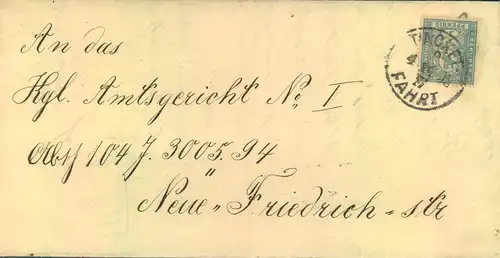 An das
Kgl. Amtsgericht No I
Abth 104 J. 3005.94
Neue „ Friedrich = str
FAHRT